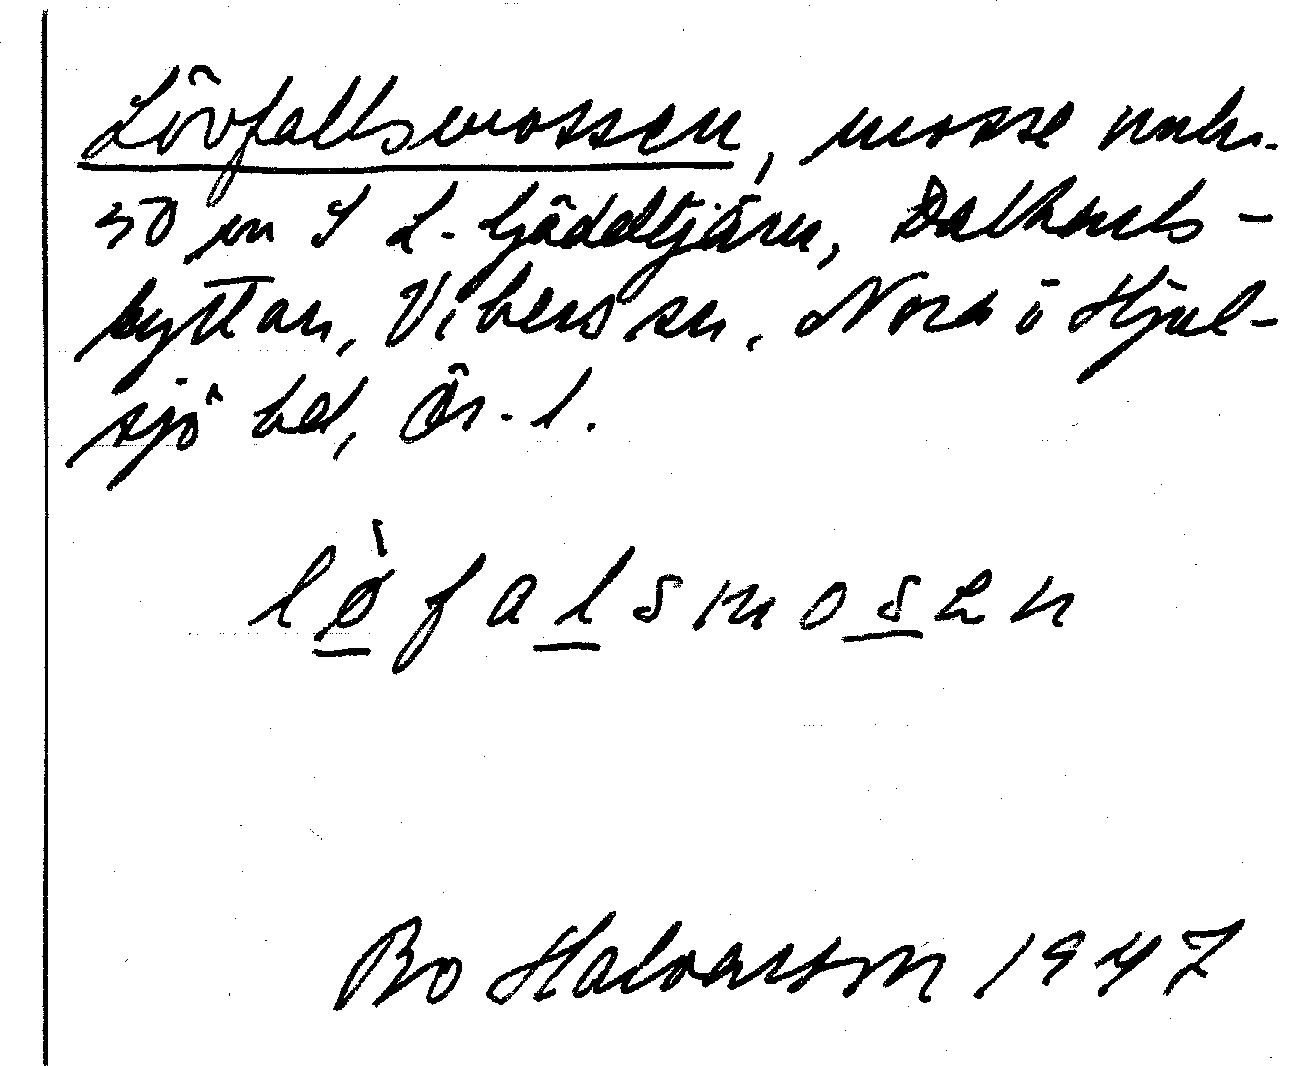 Lövfallsmossen, mosse
50 m S L. Gäddtjärn, Dalkarls-
hyttan, Vikers sn, Nora o Hjul-
sjö bd, Ör. l.
lò̲fal̲smos̲en
Bo Halvarsson 1947